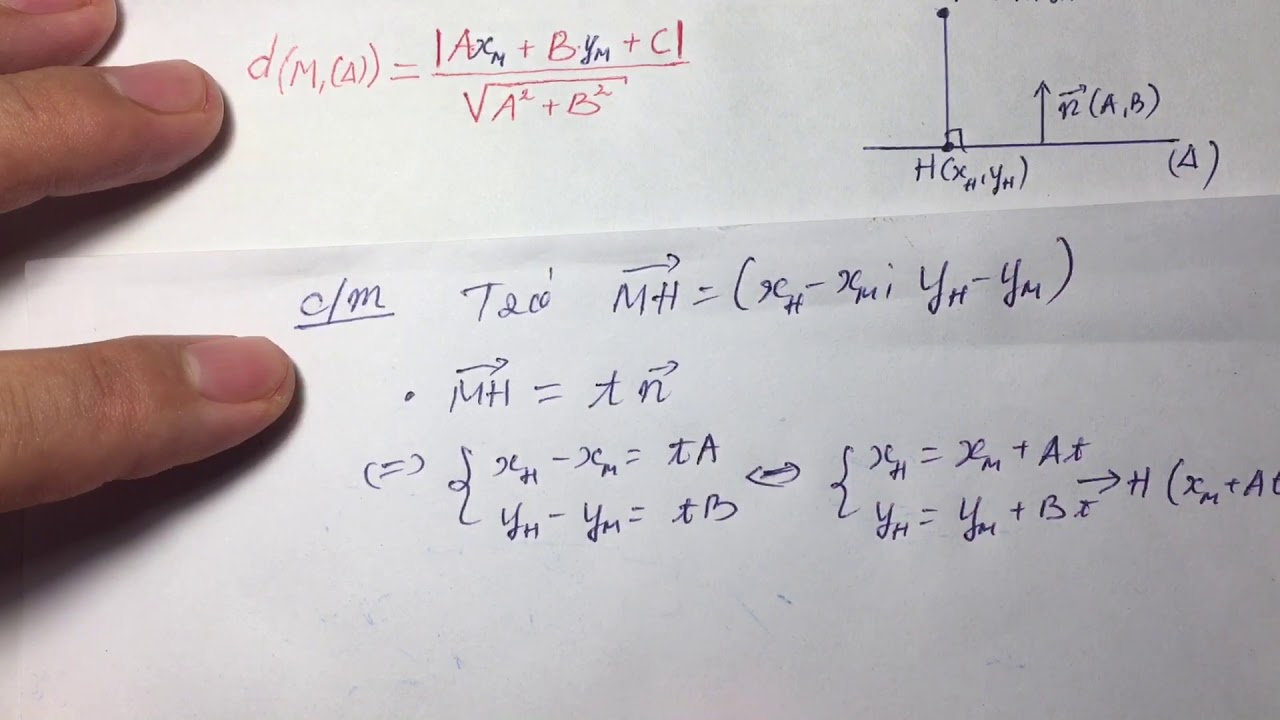 d(M,(Δ)) = |Ax_M + B.y_M + C| / √(A² + B²)
n⃗(A,B)
H(x_H, y_H)
(Δ)
c/m Ta có MH⃗ = (x_H - x_M; y_H - y_M)
• MH⃗ = t n⃗
<=> { x_H - x_M = tA <=> { x_H = x_M + At
y_H - y_M = tB y_H = y_M + Bt → H (x_M + At